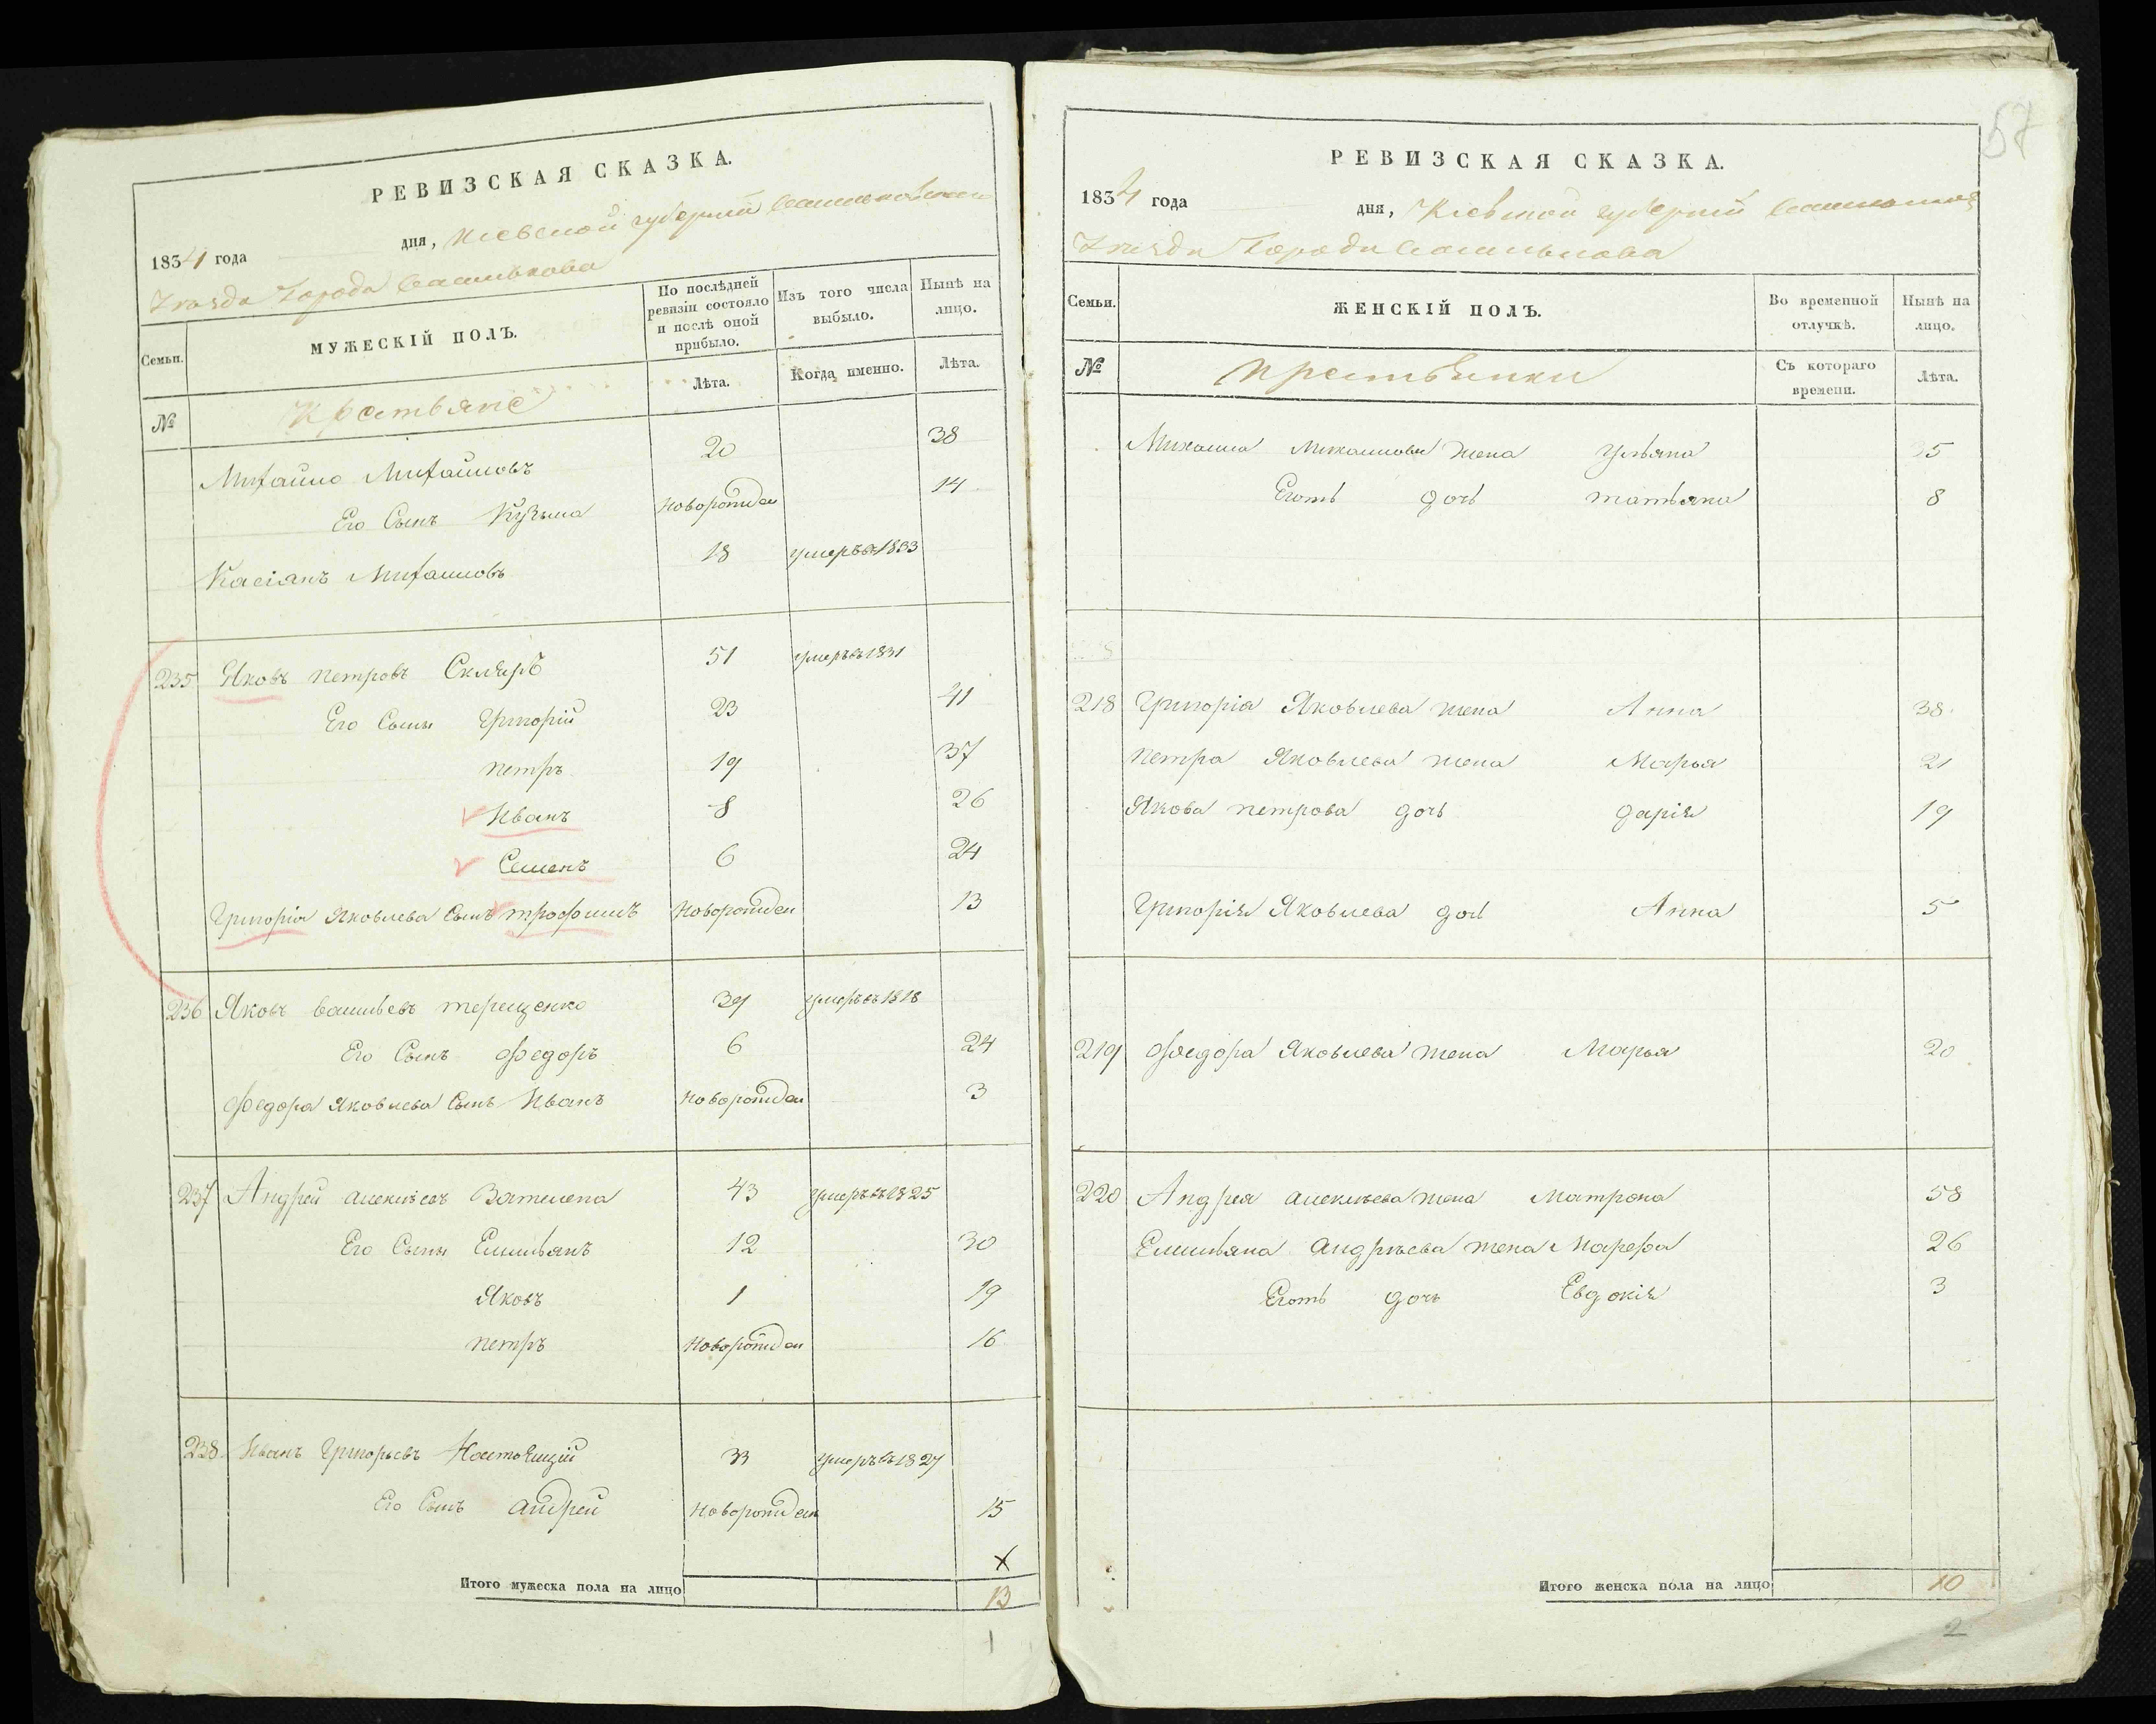 57
РЕВИЗСКАЯ СКАЗКА.
1834 года дня, Кіевской губерніи Васильковскаго
Уезда Города Василькова
Семьи.
МУЖЕСКІЙ ПОЛЪ.
По послѣдней ревизіи состояло и послѣ оной прибыло.
Изъ того числа выбыло.
Нынѣ на лицо.
Лѣта.
Когда именно.
Лѣта.
№ Крестьяне
Михайло Михайловъ 20 38
Его Сынъ Кузьма новорожден 14
Касіянъ Михайловъ 18 умеръ въ 1833
235 Яковъ Петровъ Скляръ 51 умеръ въ 1831
Его Сыны Григорій 23 41
Петръ 19 37
Иванъ 8 26
Семенъ 6 24
Григорія Яковлева Сынъ Трофимъ новорожден 13
236 Яковъ Васильевъ Терещенко 39 умеръ въ 1818
Его Сынъ Федоръ 6 24
Федора Яковлева Сынъ Иванъ новорожден 3
237 Андрей Алексѣевъ 43 умеръ въ 1825
Его Сыны Емильянъ 12 30
Яковъ 1 19
Петръ новорожден 16
238 Иванъ Григорьевъ 33 умеръ въ 1827
Его Сынъ Андрей новорожден 15
х
Итого мужеска пола на лицо 13
1
РЕВИЗСКАЯ СКАЗКА.
1834 года дня, Кіевской губерніи
Уезда Города Василькова
Семьи.
ЖЕНСКІЙ ПОЛЪ.
Во временной отлучкѣ.
Нынѣ на лицо.
№ Крестьянки
Съ котораго времени.
Лѣта.
Михаила Михаилова жена Ульяна 35
Егожъ дочь Татьяна 8
218 Григорія Яковлева жена Анна 38
Петра Яковлева жена Марья 21
Якова Петрова дочь Дарія 19
Григорія Яковлева дочь Анна 5
219 Федора Яковлева жена Марья 20
220 Андрея Алексѣева жена Матрона 58
Емильяна Андрѣева жена Марефа 26
Егожъ дочь Евдокія 3
Итого женска пола на лицо 10
2